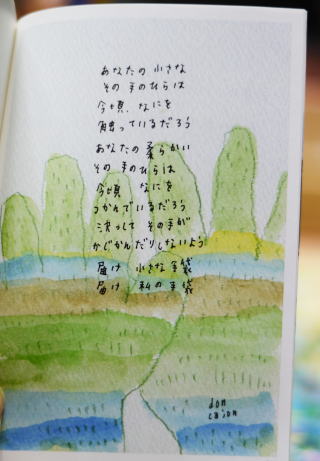 あなたの小さな
その手のひらは
今頃、なにを
触っているだろう
あなたの柔らかい
その手のひらは
今頃 なにを
つかんでいるだろう
決して その手が
かじかんだりしないよう
届け 小さな手袋
届け 私の手袋
don
cajon